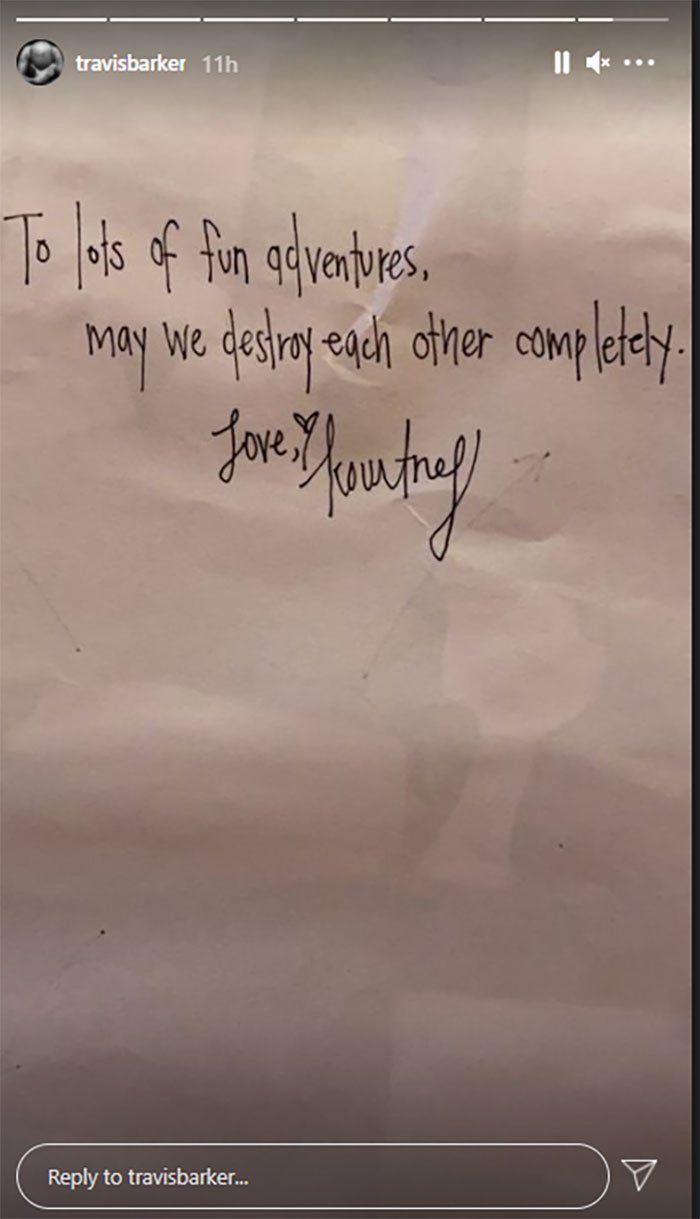 travisbarker 11h
To lots of fun adventures,
may we destroy each other completely.
Love, kourtney
Reply to travisbarker...